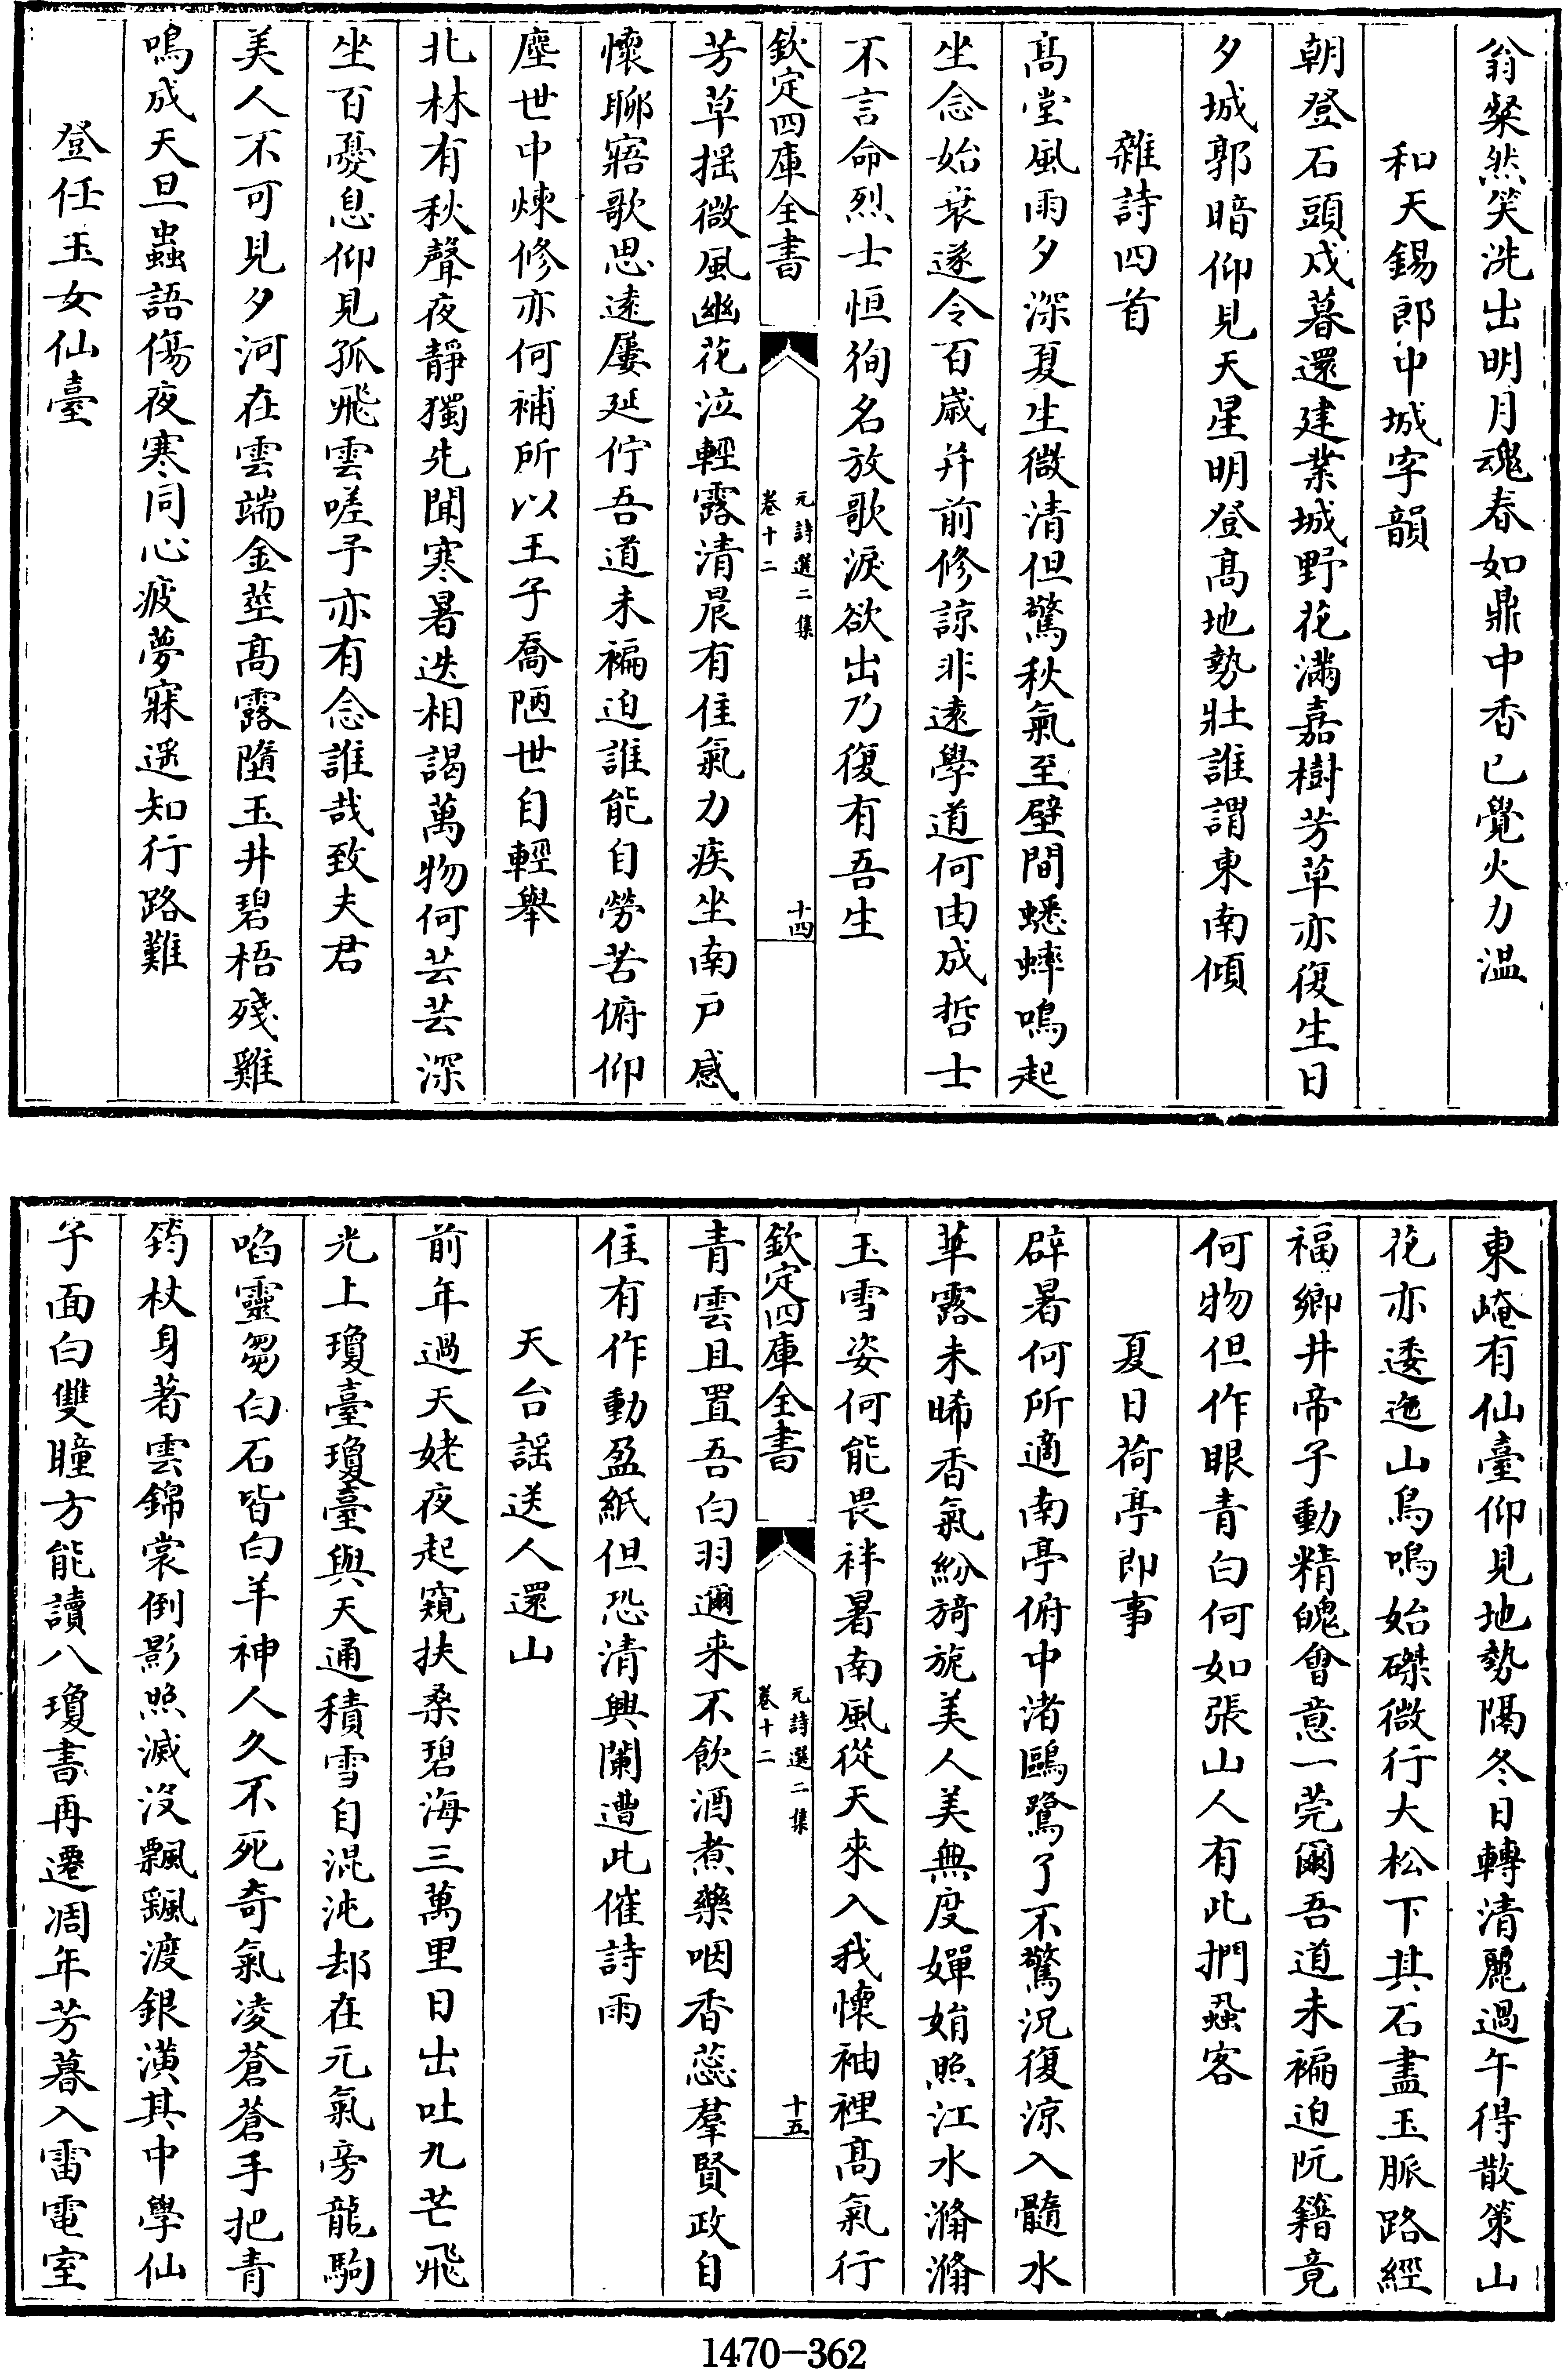 翁粲然笑洗出明月魂春如鼎中香已覺火力温
和天錫郎中城字韻
朝登石頭戍暮還建業城野花滿嘉樹芳草亦復生日
夕城郭暗仰見天星明登髙地勢壯誰謂東南傾
雜詩四首
髙堂風雨夕深夏生微清但驚秋氣至壁間蟋蟀鳴起
坐念始衰遂令百歳并前修諒非遠學道何由成哲士
不言命烈士恒徇名放歌淚欲出乃復有吾生
欽定四庫全書
元詩選二集
卷十二
十四
芳草揺微風幽花泣輕露清晨有住氣力疾坐南户感
懷聊寤歌思逺屢延佇吾道未褊迫誰能自勞苦俯仰
塵世中煉修亦何補所以王子喬陋世自輕舉
北林有秋聲夜靜獨先聞寒暑迭相謁萬物何芸芸深
坐百憂息仰見孤飛雲嗟予亦有念誰哉致夫君
美人不可見夕河在雲端金莖髙露墮玉井碧梧殘雞
鳴成天旦蟲語傷夜寒同心疲夢寐遥知行路難
登任玉女仙臺
東崦有仙臺仰見地勢隔冬日轉清麗過午得散策山
花亦逶迤山鳥鳴始磔微行大松下其石盡玉脈路經
福鄉井帝子動精魄會意一莞爾吾道未褊迫阮籍竟
何物但作眼青白何如張山人有此捫蝨客
夏日荷亭即事
辟暑何所適南亭俯中渚鷗鷺了不驚況復涼入髓水
華露未晞香氣紛旖旎美人美無度嬋娟照江水滫滫
玉雪姿何能畏袢暑南風從天來入我懷袖裡髙氣行
欽定四庫全書
元詩選二集
卷十二
十五
青雲且置吾白羽邇来不飲酒煮藥咽香蕊羣賢政自
住有作動盈紙但恐清興闌遭此催詩雨
天台謡送人還山
前年過天姥夜起窺扶桑碧海三萬里日出吐九芒飛
光上瓊臺瓊臺與天通積雪自混沌却在元氣旁龍駒
啗靈芻白石皆白羊神人久不死奇氣凌蒼蒼手把青
筠杖身著雲錦裳倒影照滅沒飄飄渡銀潢其中學仙
子面白雙瞳方能讀八瓊書再遷凋年芳暮入雷電室
1470-362